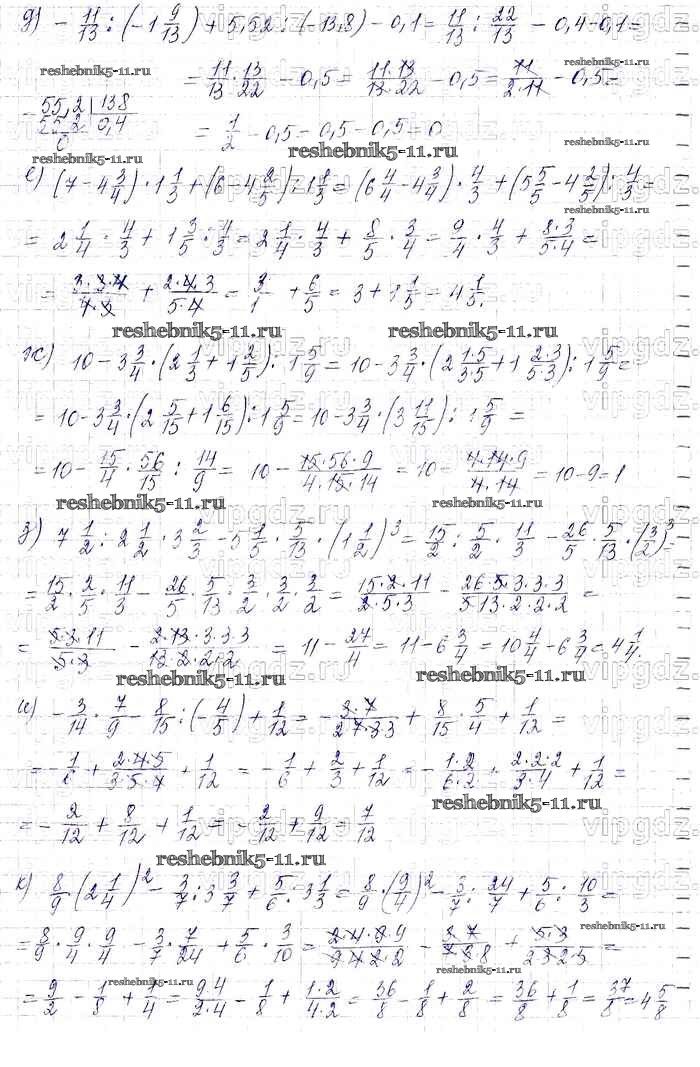 д) - 11/13 : (-1 9/13) + 5,52 : (-13,8) - 0,1 = 11/13 : 22/13 - 0,4 - 0,1 =
reshebnik5-11.ru
= 11/13 · 13/22 - 0,5 = 11·13/13·22 - 0,5 = 11/2·11 - 0,5 =
55,2 | 138
55 2 0,4
0
= 1/2 - 0,5 = 0,5 - 0,5 = 0
reshebnik5-11.ru
е) (7 - 4 3/4) · 1 1/3 + (6 - 4 2/5) : 1 1/3 = (6 4/4 - 4 3/4) · 4/3 + (5 5/5 - 4 2/5) : 4/3 =
= 2 1/4 · 4/3 + 1 3/5 : 4/3 = 2 1/4 · 4/3 + 8/5 · 3/4 = 9/4 · 4/3 + 8·3/5·4 =
= 3·3·4/4·3 + 2·4·3/5·4 = 3/1 + 6/5 = 3 + 1 1/5 = 4 1/5.
reshebnik5-11.ru reshebnik5-11.ru
ж) 10 - 3 3/4 · (2 1/3 + 1 2/5) : 1 5/9 = 10 - 3 3/4 · (2 1·5/3·5 + 1 2·3/5·3) : 1 5/9 =
= 10 - 3 3/4 · (2 5/15 + 1 6/15) : 1 5/9 = 10 - 3 3/4 · (3 11/15) : 1 5/9 =
= 10 - 15/4 · 56/15 : 14/9 = 10 - 15·56·9/4·15·14 = 10 - 4·14·9/4·14 = 10 - 9 = 1
reshebnik5-11.ru reshebnik5-11.ru
з) 7 1/2 : 2 1/2 · 3 2/3 - 5 1/5 · 5/13 · (1 1/2)³ = 15/2 : 5/2 · 11/3 - 26/5 · 5/13 · (3/2)³ =
= 15/2 · 2/5 · 11/3 - 26/5 · 5/13 · 3/2 · 3/2 · 3/2 = 15·2·11/2·5·3 - 26·5·3·3·3/5·13·2·2·2 =
= 5·3·11/5·3 - 2·13·3·3·3/13·2·2·2 = 11 - 27/4 = 11 - 6 3/4 = 10 4/4 - 6 3/4 = 4 1/4.
reshebnik5-11.ru reshebnik5-11.ru
и) - 3/14 · 7/9 - 8/15 : (- 4/5) + 1/12 = - 3·7/2·7·3·3 + 8/15 · 5/4 + 1/12 =
= - 1/6 + 2·4·5/3·5·4 + 1/12 = - 1/6 + 2/3 + 1/12 = - 1·2/6·2 + 2·2·2/3·4 + 1/12 =
reshebnik5-11.ru
= - 2/12 + 8/12 + 1/12 = - 2/12 + 9/12 = 7/12
reshebnik5-11.ru
к) 8/9 · (2 1/4)² - 3/7 : 3 3/7 + 5/6 : 3 1/3 = 8/9 · (9/4)² - 3/7 : 24/7 + 5/6 : 10/3 =
= 8/9 · 9/4 · 9/4 - 3/7 · 7/24 + 5/6 · 3/10 = 2·4·9·9/9·4·2·2 - 3·7/7·3·8 + 5·3/2·3·2·5 =
reshebnik5-11.ru reshebnik5-11.ru
= 9/2 - 1/8 + 1/4 = 9·4/2·4 - 1/8 + 1·2/4·2 = 36/8 - 1/8 + 2/8 = 36/8 + 1/8 = 37/8 = 4 5/8